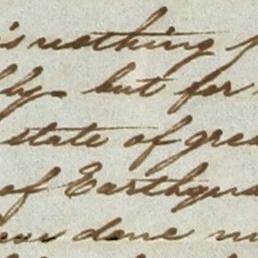 is nothing
but for
state of grea
of Earthqua
done